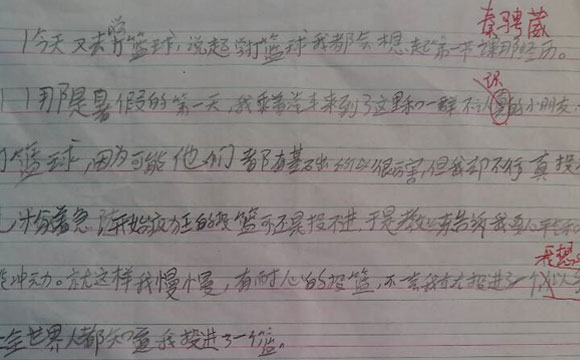 秦聘葳
今天又去学打篮球,说起学打篮球我都会想起第一节课那经历。
那是暑假的第一天,我乘着汽车来到了这里和一群不认识的小朋友
篮球,因为可能他们都有基础所以很厉害,但我却不行真投
十分着急,开始疯狂的投篮可还是投不进,于是教练告诉我要心平气和
冲动。就这样我慢慢,有耐心的投篮,不一会我就投进了一个
全世界人都知道我投进了一个篮。